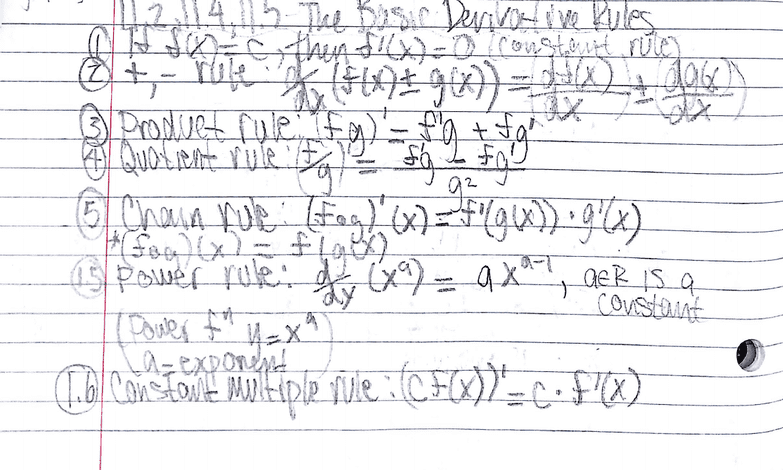 11.2, 11.4, 11.5 The Basic Derivative Rules
① If f(x)=c, then f'(x)=0 (constant rule)
② +, - rule: d/dx (f(x) ± g(x)) = df(x)/dx ± dg(x)/dx
③ Product rule: (fg)' = f'g + fg'
④ Quotient rule: (f/g)' = f'g - fg' / g²
⑤ Chain rule: (f∘g)'(x) = f'(g(x)) · g'(x)
*(f∘g)(x) = f(g(x)
1.5 Power rule: d/dx (xᵃ) = a xᵃ⁻¹, a∈R is a
constant
(Power fⁿ y=xᵃ)
a=exponent
1.6 Constant multiple rule: (c f(x))' = c · f'(x)